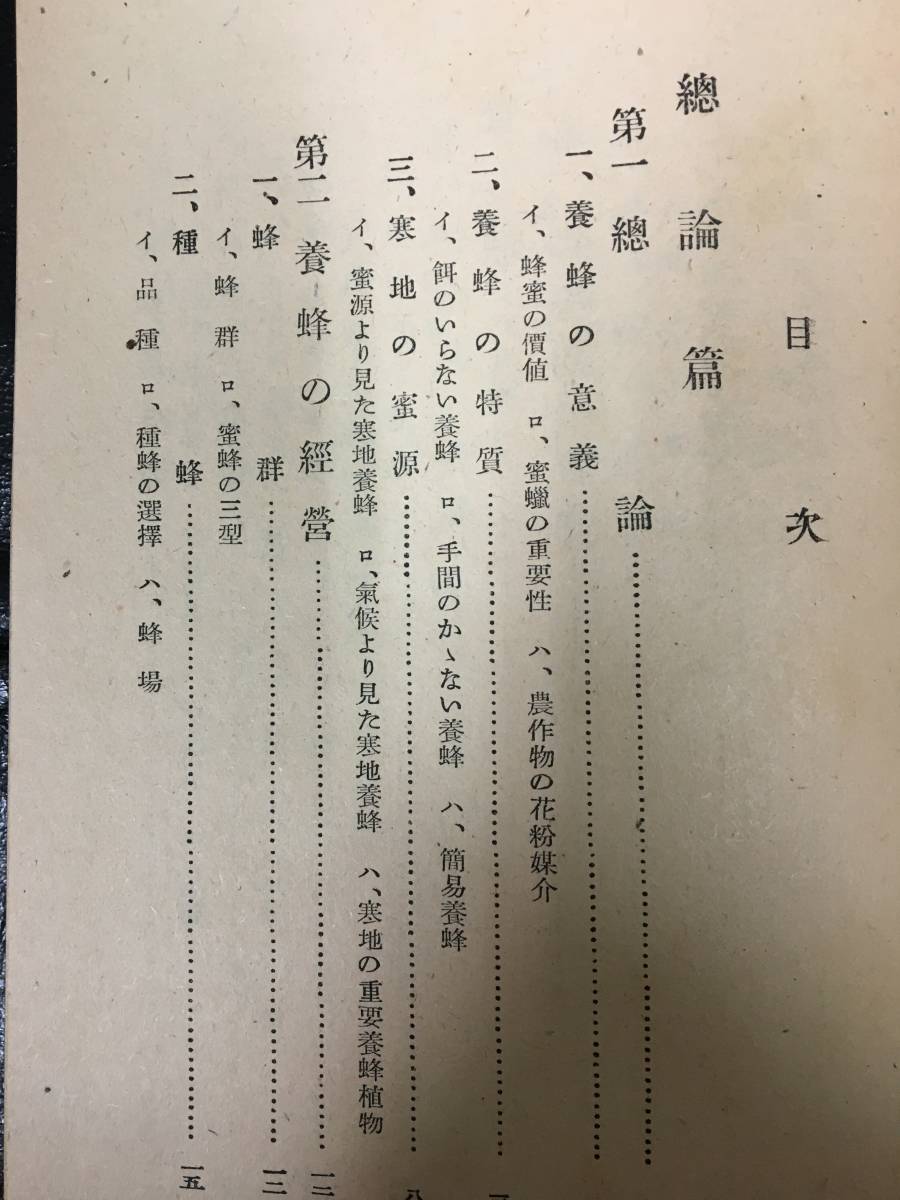 目次
總論篇
第一 總論……………………
一、養蜂の意義……………………
イ、蜂蜜の價値 ロ、蜜蠟の重要性 ハ、農作物の花粉媒介
二、養蜂の特質……………………
イ、餌のいらない養蜂 ロ、手間のかゝない養蜂 ハ、簡易養蜂
三、寒地の蜜源……………………八
イ、蜜源より見た寒地養蜂 ロ、氣候より見た寒地養蜂 ハ、寒地の重要養蜂植物
第二 養蜂の經營……………………一二
一、蜂群……………………一二
イ、蜂群 ロ、蜜蜂の三型
二、種蜂……………………一五
イ、品種 ロ、種蜂の選擇 ハ、蜂場